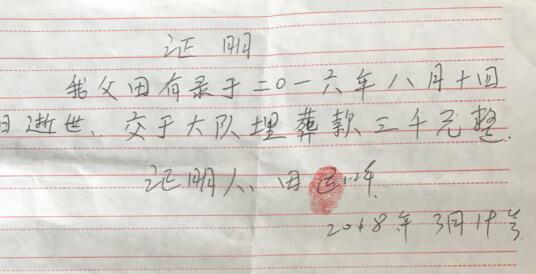 证明
我父田有录于二〇一六年八月十四
日逝世、交于大队埋葬款三千元整.
证明人、田
2018年3月19号